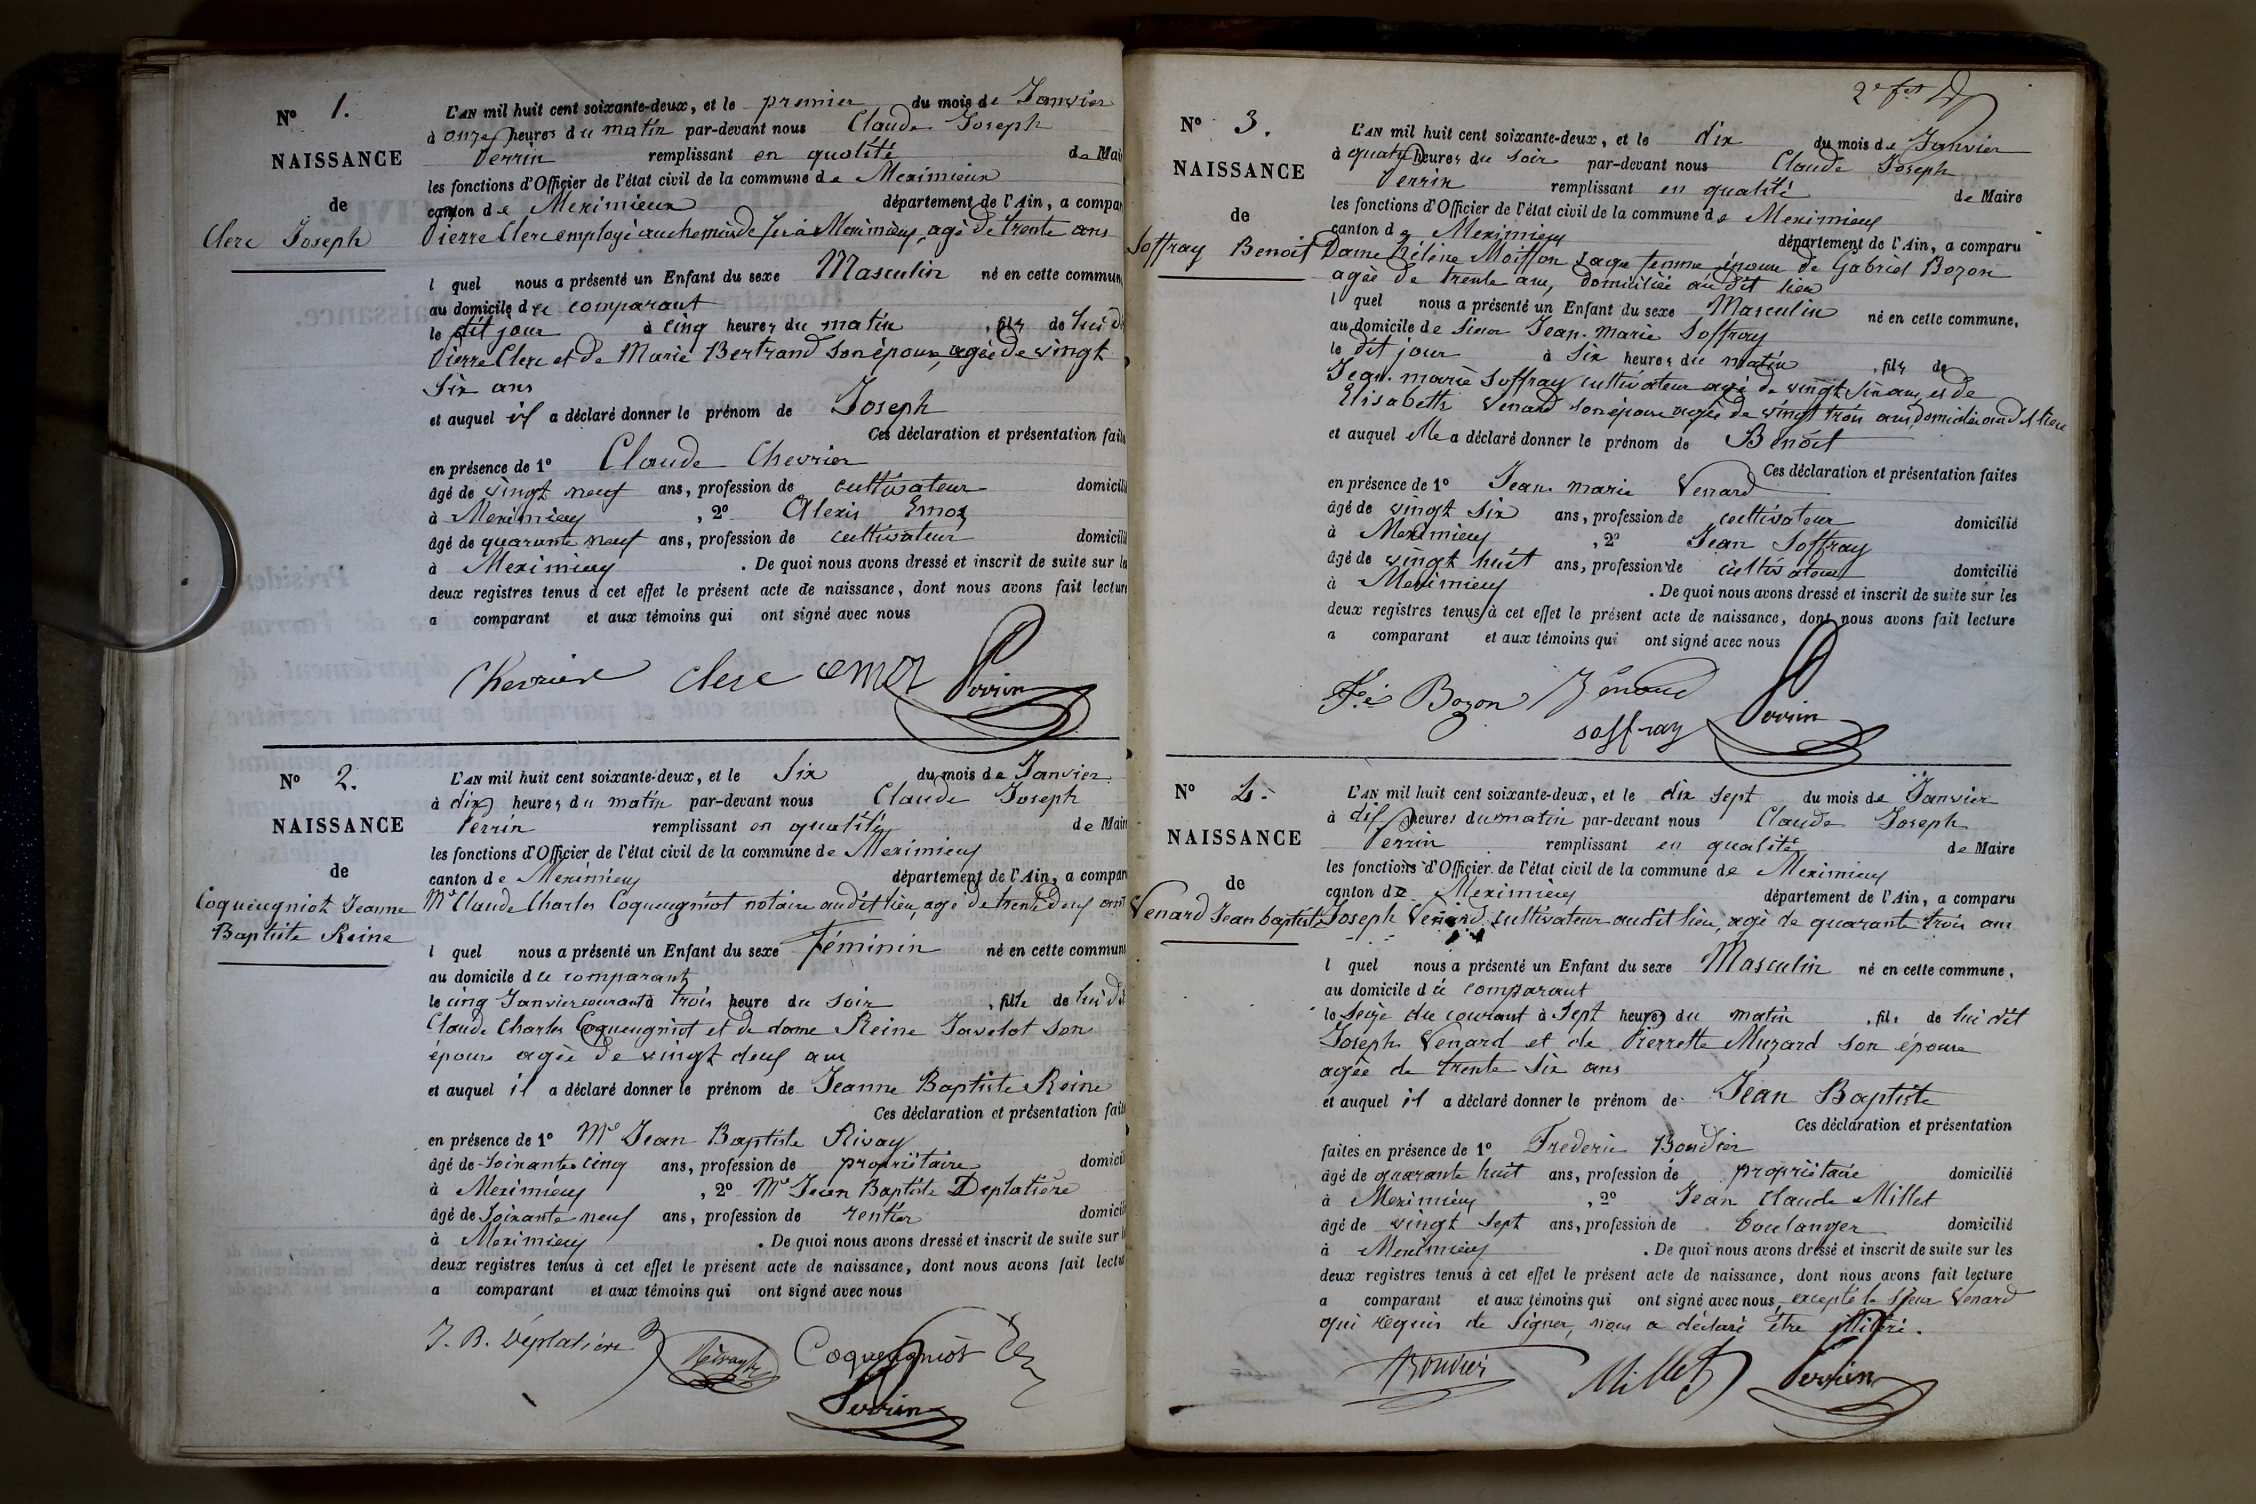 N° 1.
NAISSANCE
de
Clerc Joseph
L'AN mil huit cent soixante-deux, et le premier du mois de Janvier
à onze heures du matin par-devant nous Claude Joseph
Perrin remplissant en qualité de Mai
les fonctions d'Officier de l'état civil de la commune de Meximieux
canton de Meximieux département de l'Ain, a compar
Pierre Clerc employé au chemin de fer à Meximieux, agé de trente ans
l quel nous a présenté un Enfant du sexe Masculin né en cette commune
au domicile du comparant
le dit jour à cinq heures du matin , fils de lui d
Pierre Clerc et de Marie Bertrand son épouse, agée de vingt
six ans
et auquel il a déclaré donner le prénom de Joseph
Ces déclaration et présentation faite
en présence de 1° Claude Chevrier
âgé de vingt neuf ans, profession de cultivateur domicilié
à Meximieux , 2° Alexis Emoz
âgé de quarante neuf ans, profession de cultivateur domicilié
à Meximieux . De quoi nous avons dressé et inscrit de suite sur le
deux registres tenus à cet effet le présent acte de naissance, dont nous avons fait lecture
a comparant et aux témoins qui ont signé avec nous
Chevrier Clerc emoz Perrin
N° 2.
NAISSANCE
de
Coqueugniot Jeanne
Baptiste Reine
L'AN mil huit cent soixante-deux, et le six du mois de Janvier
à dix heures du matin par-devant nous Claude Joseph
Perrin remplissant en qualité de Mair
les fonctions d'Officier de l'état civil de la commune de Meximieux
canton de Meximieux département de l'Ain, a compar
Mr Claude Charles Coqueugniot notaire audit lieu, agé de trente deux ans
l quel nous a présenté un Enfant du sexe féminin né en cette commune
au domicile du comparant
le cinq Janvier courant à trois heure du soir , fille de lui dit
Claude Charles Coqueugniot et de dame Reine Javelot son
épouse agée de vingt deux ans
et auquel il a déclaré donner le prénom de Jeanne Baptiste Reine
Ces déclaration et présentation faite
en présence de 1° Mr Jean Baptiste Rivay
âgé de soixante cinq ans, profession de propriétaire domicil
à Meximieux , 2° Mr Jean Baptiste Deplatière
âgé de soixante neuf ans, profession de rentier domicil
à Meximieux . De quoi nous avons dressé et inscrit de suite sur l
deux registres tenus à cet effet le présent acte de naissance, dont nous avons fait lectu
a comparant et aux témoins qui ont signé avec nous
J. B. Déplatière Coqueugniot
Perrin
2e fet
N° 3.
NAISSANCE
de
Soffray Benoit
L'AN mil huit cent soixante-deux, et le dix du mois de Janvier
à quatre heures du soir par-devant nous Claude Joseph
Perrin remplissant en qualité de Maire
les fonctions d'Officier de l'état civil de la commune de Meximieux
canton de Meximieux département de l'Ain, a comparu
Dame hélène Moiffon sage femme épouse de Gabriel Bozon
agée de trente ans, domiciliée au dit lieu
l quel nous a présenté un Enfant du sexe Masculin né en cette commune,
au domicile de sieur Jean-Marie Soffray
le dit jour à six heures du matin , fils de
Jean-marie Soffray cultivateur agé de vingt six ans, et de
Elisabeth Venard son épouse agée de vingt trois ans, domiciliés audit lieu
et auquel elle a déclaré donner le prénom de Benoit
Ces déclaration et présentation faites
en présence de 1° Jean marie Venard
âgé de vingt six ans, profession de cultivateur domicilié
à Meximieux , 2° Jean Soffray
âgé de vingt huit ans, profession de cultivateur domicilié
à Meximieux . De quoi nous avons dressé et inscrit de suite sur les
deux registres tenus à cet effet le présent acte de naissance, dont nous avons fait lecture
a comparant et aux témoins qui ont signé avec nous
Bozon
soffray Perrin
N° 4.
NAISSANCE
de
Venard Jean baptiste
L'AN mil huit cent soixante-deux, et le dix sept du mois de Janvier
à dix heures du matin par-devant nous Claude Joseph
Perrin remplissant en qualité de Maire
les fonctions d'Officier de l'état civil de la commune de Meximieux
canton de Meximieux département de l'Ain, a comparu
Joseph Venard, cultivateur audit lieu, agé de quarante trois ans
l quel nous a présenté un Enfant du sexe Masculin né en cette commune,
au domicile du comparant
le seize du courant à sept heures du matin , fils de lui dit
Joseph Venard et de Pierrette Muzard son épouse
agée de trente six ans
et auquel il a déclaré donner le prénom de Jean Baptiste
Ces déclaration et présentation
faites en présence de 1° Frederic Boudier
âgé de quarante huit ans, profession de propriétaire domicilié
à Meximieux , 2° Jean Claude Millet
âgé de vingt sept ans, profession de boulanger domicilié
à Meximieux . De quoi nous avons dressé et inscrit de suite sur les
deux registres tenus à cet effet le présent acte de naissance, dont nous avons fait lecture
a comparant et aux témoins qui ont signé avec nous, excepté le sieur Venard
qui requis de signer, nous a déclaré être illitéré.
Millet Perrin